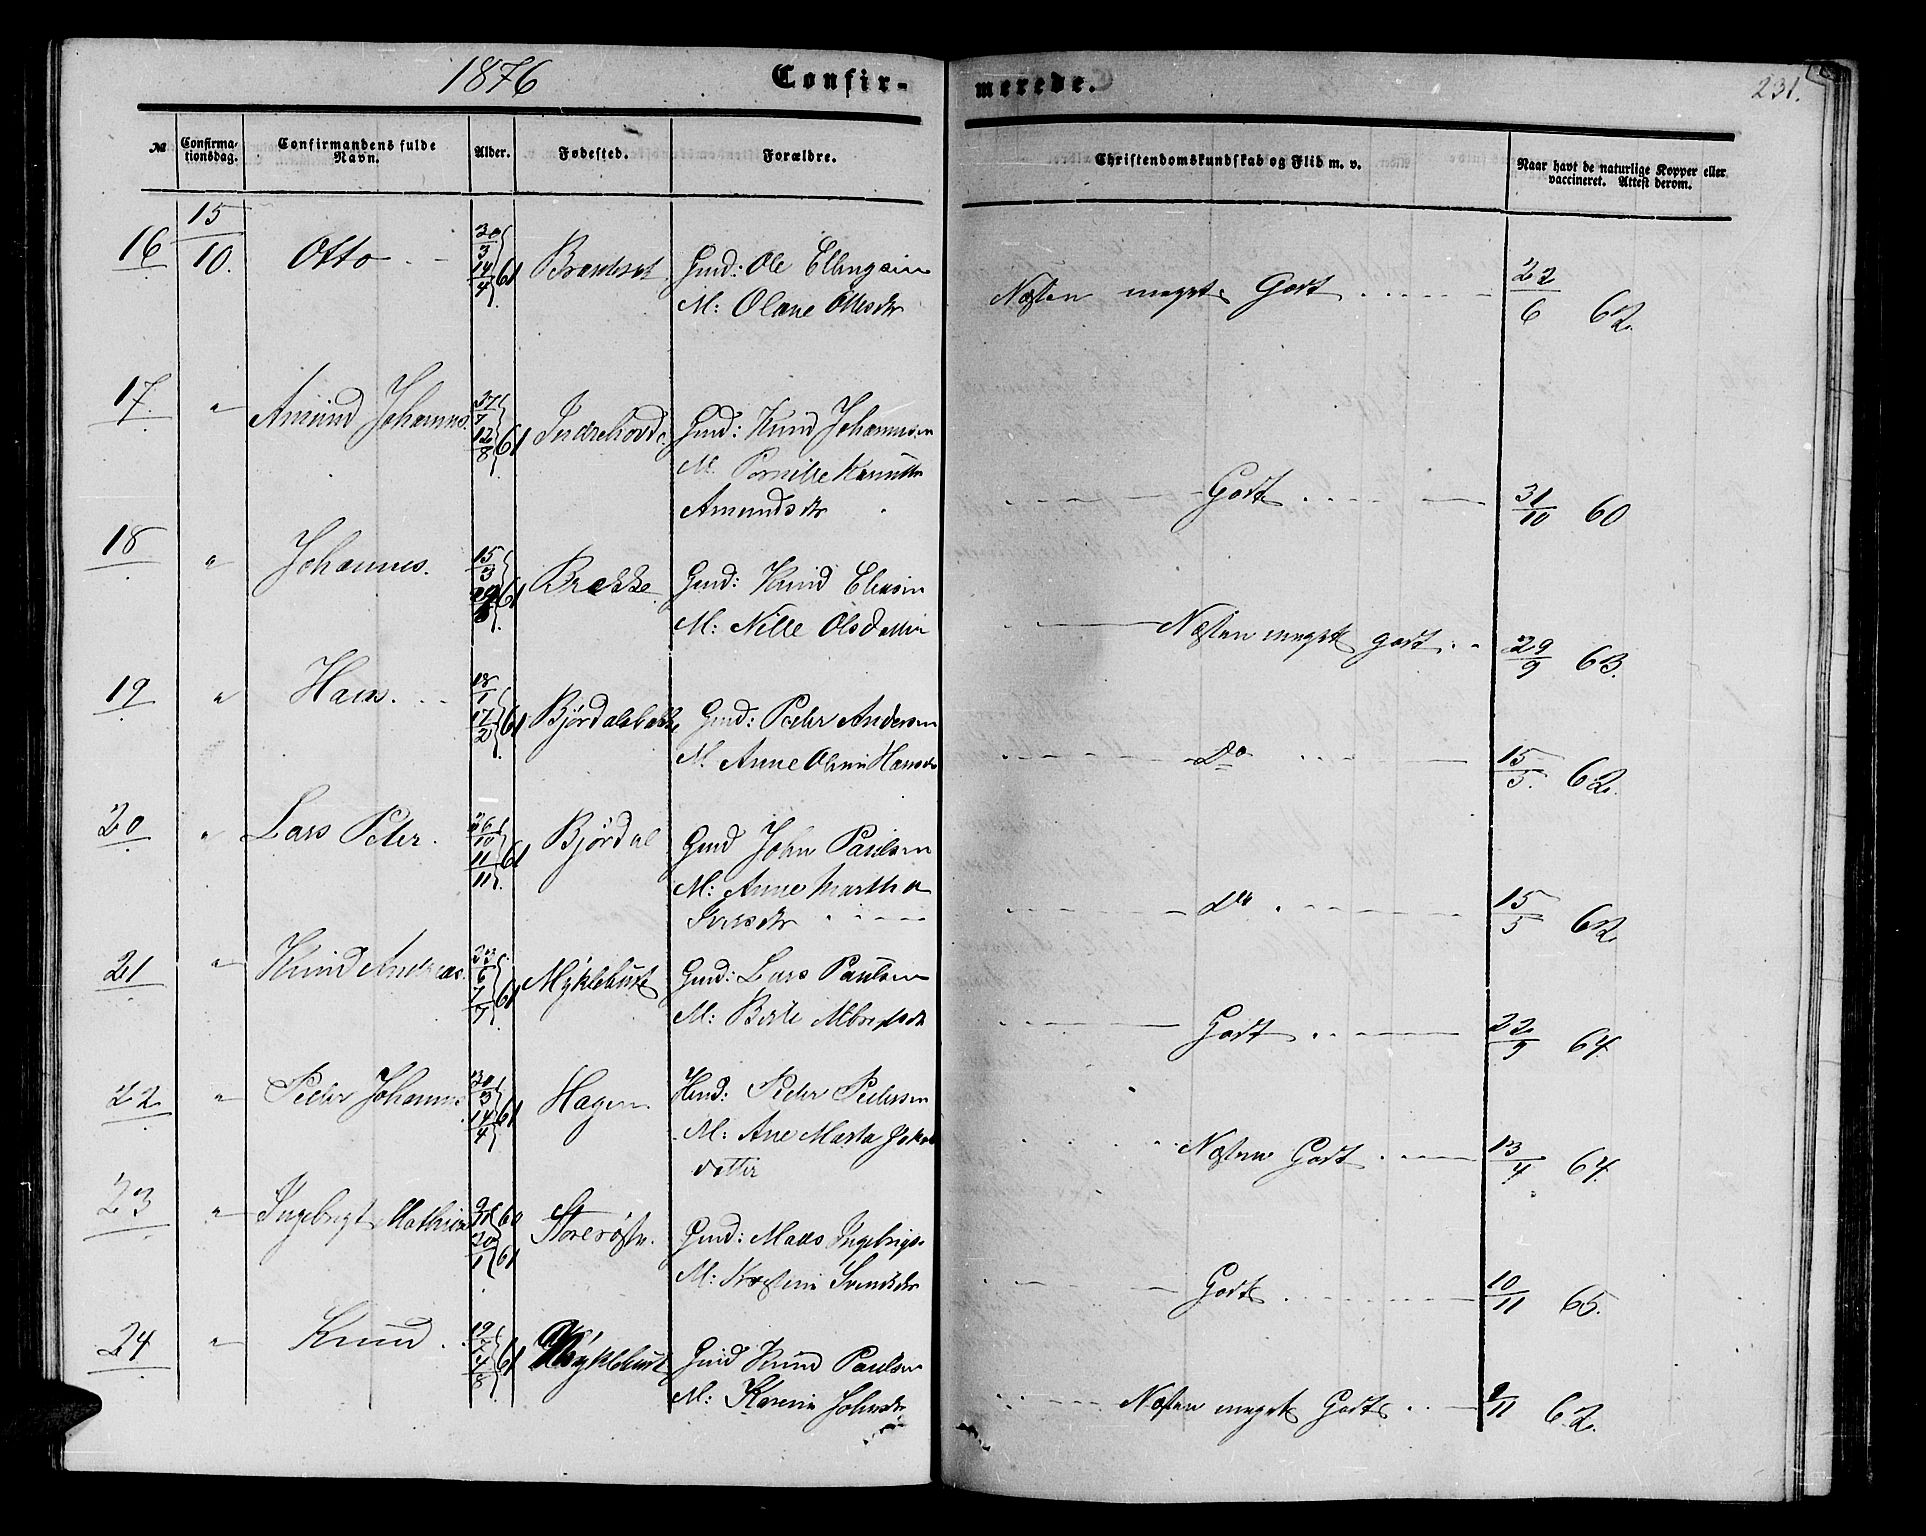 1876 Confir-
merede. 231.
№ Confirma-tionsdag. Confirmandens fulde Navn. Alder. Fødested. Forældre. Christendomskundskab og Flid m. v. Naar havt de naturlige Kopper eller vaccineret. Attest derom.
16 15/10. Otto 30/3 14/4 61 Gmd: Ole Ellingsen Næsten meget Godt 22/6 62.
M: Olane Ottesdr
17. " Amund Johannes. 12/8 61 Indrehovde Gmd: Knud Johannsen Godt 31/10 60
M. Pernille
Amundsdr
18 " Johannes. 15/3 61 Brekke Gmd: Knud
M: Nille Olsdatter Næsten meget godt 29/9 63.
19 " Hans. 18/1 17/2 61 Bjørdalsbakke Gmd: Peder Andersen
M. Anne Oline Hansdr Do 15/5. 62.
20 " Lars Peter. 26/10 11/11. 61 Bjørdal Gmd John Paulsen
M: Anne Martha
Iversdr Do 15/5 62
21 " Knud Andreas. 23/6 7/7 61 Myklebust Gmd: Lars Paulsen
M: Berte Godt 22/9 64.
22 " Peder Johannes 30/3 14/4 61 Hagen. Hmd: Peder Pedersen
M: Ane Marta
datter Næsten Godt 13/4 64.
23 " Ingebrigt Mathias 60 20/1 61 Storerøstn. Gmd: Mads Ingebrigts.
M: Svendsdr Godt 10/11 65.
24 " Knud 19/7 4/8 61 Myklebust Gmd Knud Paulsen
M: Karen Johnsdr Næsten meget Godt 9/11 62.